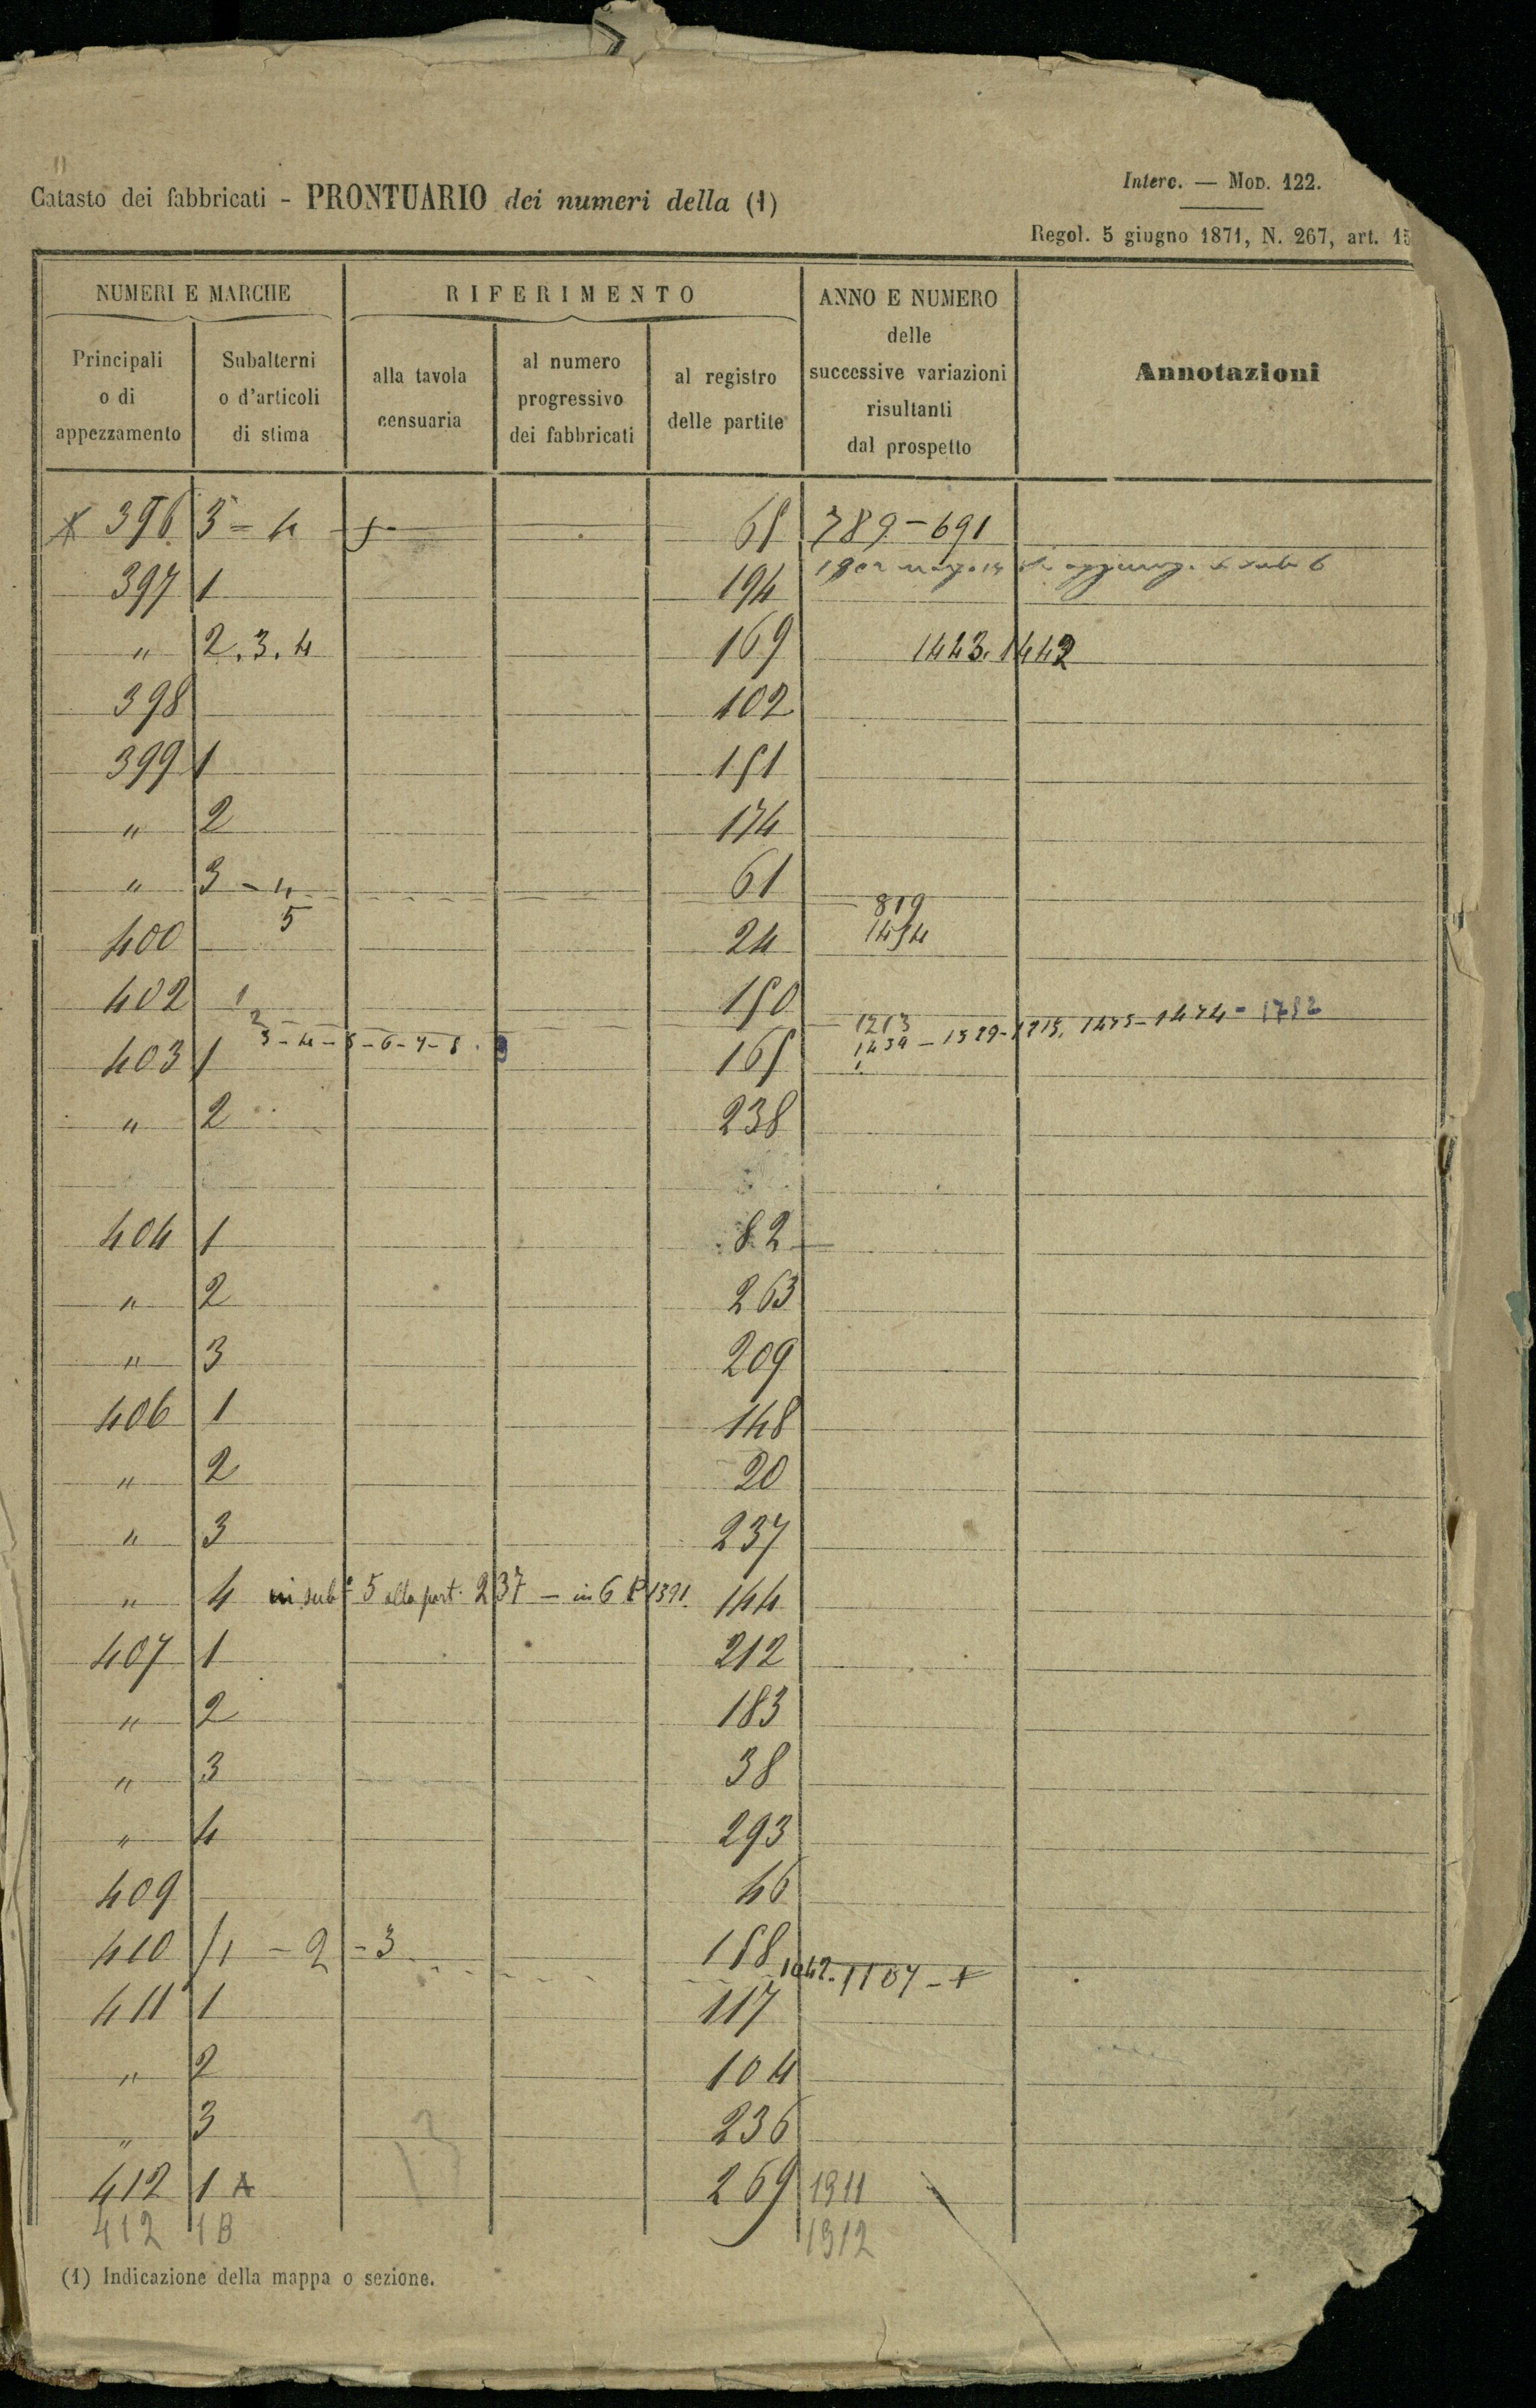 Interc. — Mod. 122.
Catasto dei fabbricati - PRONTUARIO dei numeri della (1)
Regol. 5 giugno 1871, N. 267, art. 15
NUMERI E MARCHE
RIFERIMENTO
ANNO E NUMERO
delle
successive variazioni
risultanti
dal prospetto
Annotazioni
Principali
o di
appezzamento
Subalterni
o d'articoli
di stima
alla tavola
censuaria
al numero
progressivo
dei fabbricati
al registro
delle partite
396 3 = 4 - 5 - 65 789-691
397 1 194
" 2.3.4 169 1443.1442
398 102
399 1 151
" 2 174
" 3 - 4 61
5 819
400 24 1454
402 1 150
2 1213
3-4-5-6-7-8 . 9
403 1 165
" 2 238
404 1 82
" 2 263
" 3 209
406 1 148
" 2 20
" 3 237
" 4 in sub° 5 alla part. 237 — in 6 P 1391. 144
407 1 212
" 2 183
" 3 38
" 4 293
409 46
410 1 - 2 - 3 158
1042-1107-+
411 1 117
" 2 104
" 3 236
412 1 A 269 1311
412 1B 1312
13
(1) Indicazione della mappa o sezione.